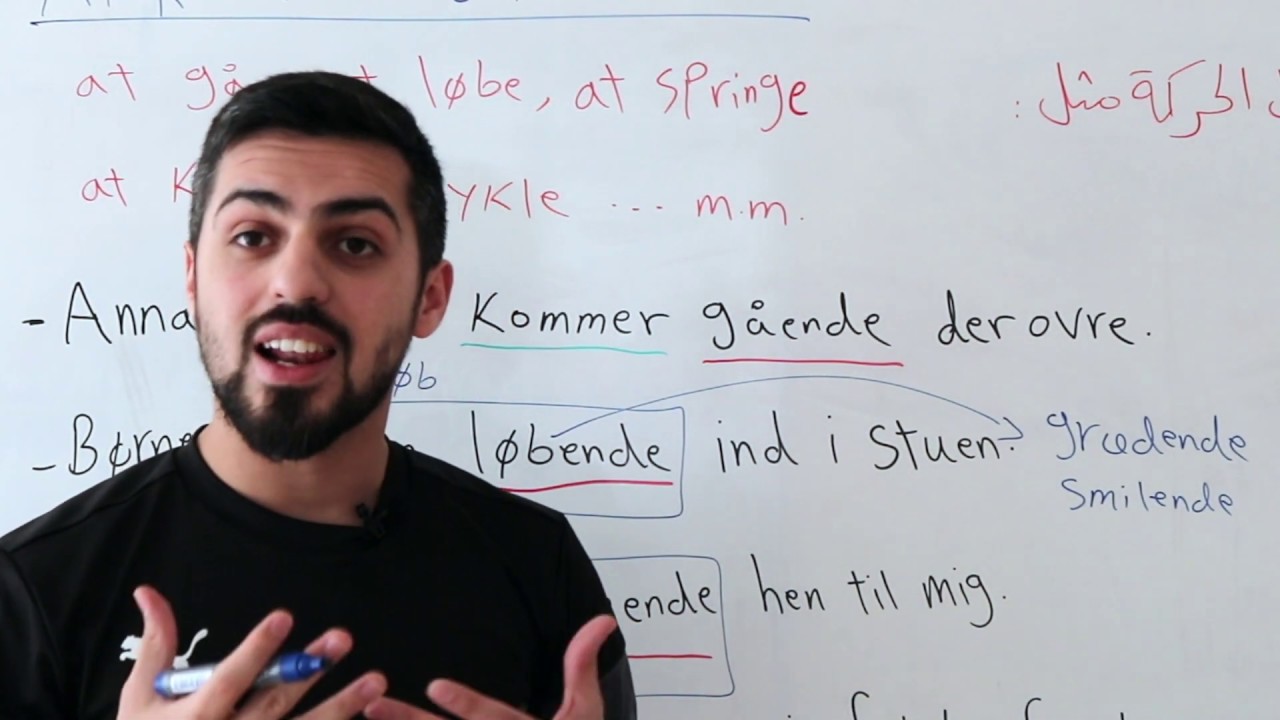 at gå at løbe, at springe
الحركة مثل :
at ... m.m.
- Anna Kommer gående derovre.
øb
- Børne løbende ind i stuen.
grædende
Smilende
ende hen til mig.